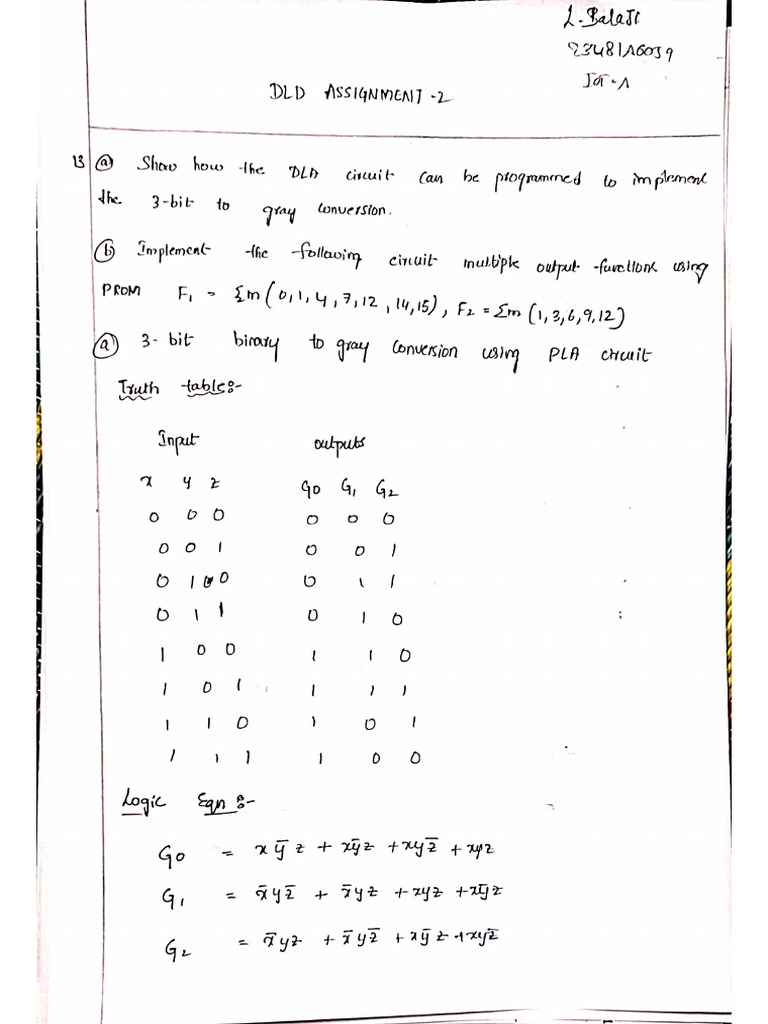 L. Balaji
23481A6039
IOT-A
DLD ASSIGNMENT-2
13 (a) Show how the DLA circuit can be programmed to implement
the 3-bit to gray conversion.
(b) Implement the following circuit multiple output functions using
PROM F₁ = Σm(0,1,4,7,12,14,15), F₂ = Σm(1,3,6,9,12)
(a) 3-bit binary to gray conversion using PLA circuit
Truth table:-
Input outputs
x y z G0 G₁ G₂
0 0 0 0 0 0
0 0 1 0 0 1
0 1 0 0 1 1
0 1 1 0 1 0
1 0 0 1 1 0
1 0 1 1 1 1
1 1 0 1 0 1
1 1 1 1 0 0
Logic Eqn :-
G0 = xy̅z + xy̅z + xyz̅ + xyz
G₁ = x̅yz̅ + x̅yz + xyz + xy̅z
G₂ = x̅yz + x̅yz̅ + xy̅z + xyz̅